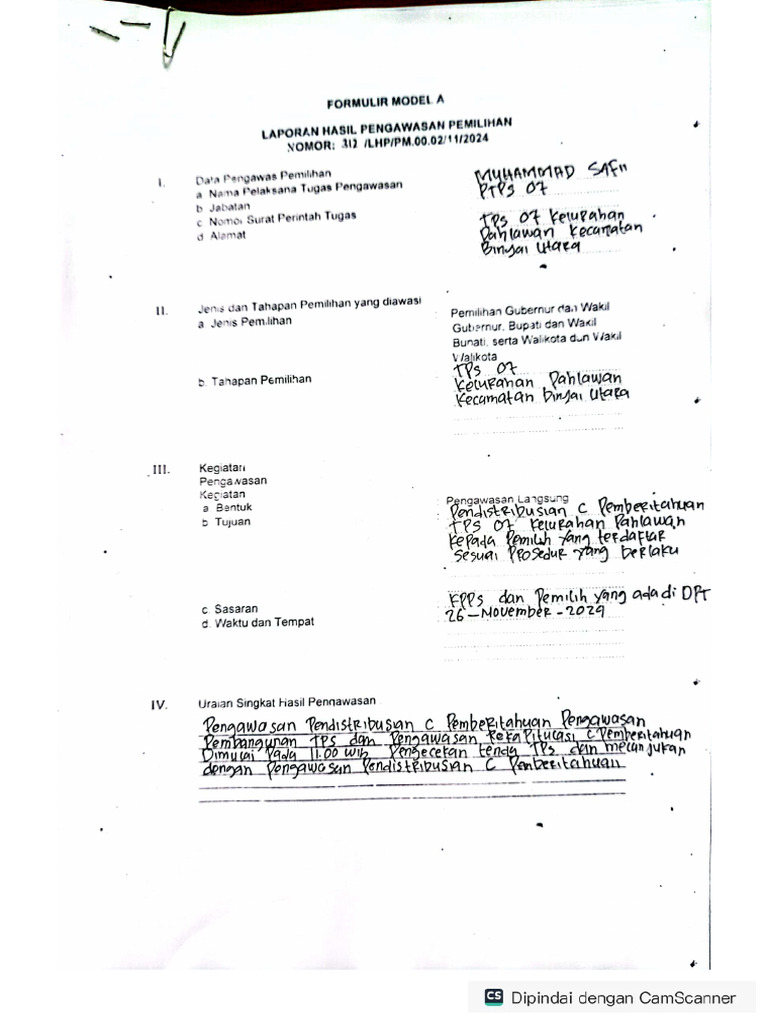 FORMULIR MODEL A
LAPORAN HASIL PENGAWASAN PEMILIHAN
NOMOR: 312 /LHP/PM.00.02/11/2024
I. Data Pengawas Pemilihan
a Nama Pelaksana Tugas Pengawasan MUHAMMAD SAFII
b Jabatan PTPS 07
c Nomor Surat Perintah Tugas
d Alamat TPS 07 Kelurahan
Pahlawan Kecamatan
Binjai Utara
II. Jenis dan Tahapan Pemilihan yang diawasi
a. Jenis Pemilihan Pemilihan Gubernur dan Wakil
Gubernur, Bupati dan Wakil
Bupati, serta Walikota dan Wakil
Walikota
b. Tahapan Pemilihan TPS 07
Kelurahan Pahlawan
Kecamatan Binjai Utara
III. Kegiatan
Pengawasan
Kegiatan
a Bentuk Pengawasan Langsung
b Tujuan Pendistribusian C Pemberitahuan
TPS 07 Kelurahan Pahlawan
Kepada Pemilih yang terdaftar
Sesuai Prosedur yang berlaku
c Sasaran KPPS dan Pemilih yang ada di DPT
d. Waktu dan Tempat 26-November-2024
IV. Uraian Singkat Hasil Pengawasan
Pengawasan Pendistribusian C Pemberitahuan Pengawasan
Pembangunan TPS dan Pengawasan Rekapitulasi C Pemberitahuan
Dimulai Pada 11.00 WIB Pengecekan tenda TPS dan melanjukan
dengan Pengawasan Pendistribusian C Pemberitahuan
CS Dipindai dengan CamScanner